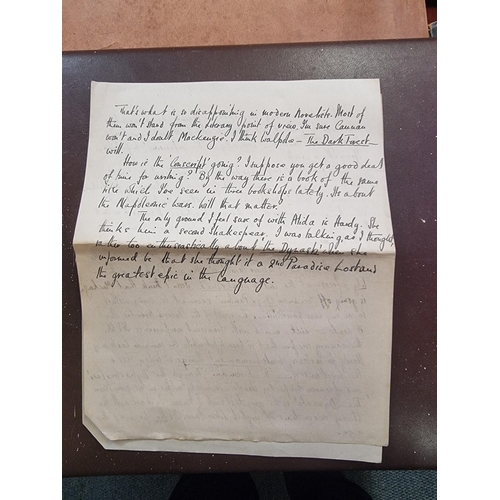 That's what is so disappointing in modern Novelists. Most of
them won't stand from the literary point of view. I'm sure Cannan
won't and I doubt Mackenzie. I think Walpole – The Dark Forest
will.
How is the 'Conscript' going? I suppose you get a good deal
of time for writing? By the way there is a book of the same
title which I've seen in three bookshops lately. Its about
the Napoleonic wars. Will that matter?
The only ground I feel sure of with Alda is Hardy. She
thinks him a second Shakespear. I was talking, as I thought
rather too enthusiastically about the Dynasts when she
informed me that she thought it a 2nd Paradise Lost and
the greatest epic in the language.